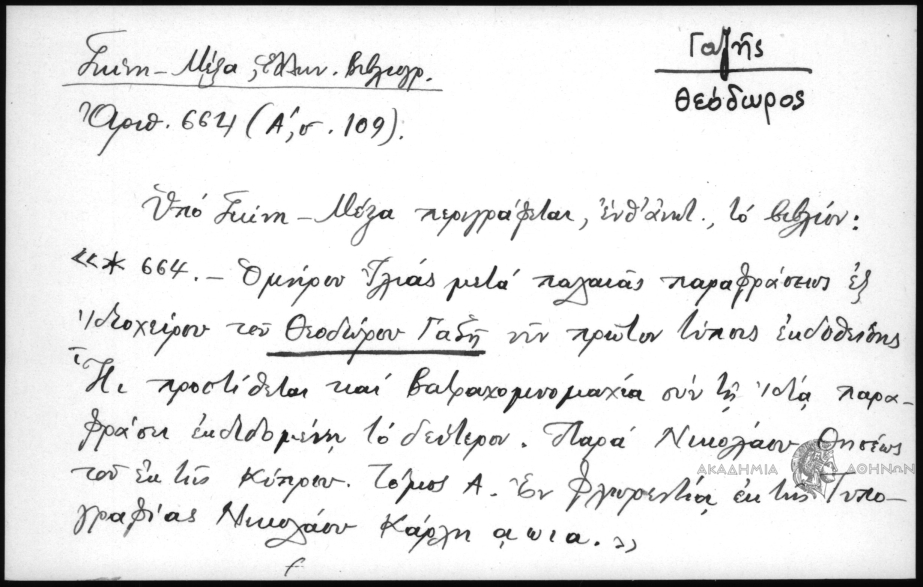 Γαζῆς
Θεόδωρος
Γκίνη – Μέξα, Ἑλλην. βιβλιογρ.
Ἀριθ. 664 (Α΄, σ. 109).
Ὑπό Γκίνη – Μέξα περιγράφεται, ἐνθ' ἀνωτ., τό βιβλίον:
«* 664. – Ὁμήρου Ἰλιάς μετά παλαιᾶς παραφράσεως ἐξ
ἰδιοχείρου τοῦ Θεοδώρου Γαζῆ νῦν πρῶτον τύποις ἐκδοθείσης
ᾗ προστίθεται καί Βατραχομυομαχία σύν τῇ ἰδίᾳ παρα-
φράσει ἐκδιδομένῃ τό δεύτερον. Παρά Νικολάου Θησέως
τοῦ ἐκ τῆς Κύπρου. Τόμος Α. Ἐν Φλωρεντίᾳ ἐκ τῆς Τυπο-
γραφίας Νικολάου Κάρλη αωια.»
ΑΚΑΔΗΜΙΑ ΑΘΗΝΩΝ